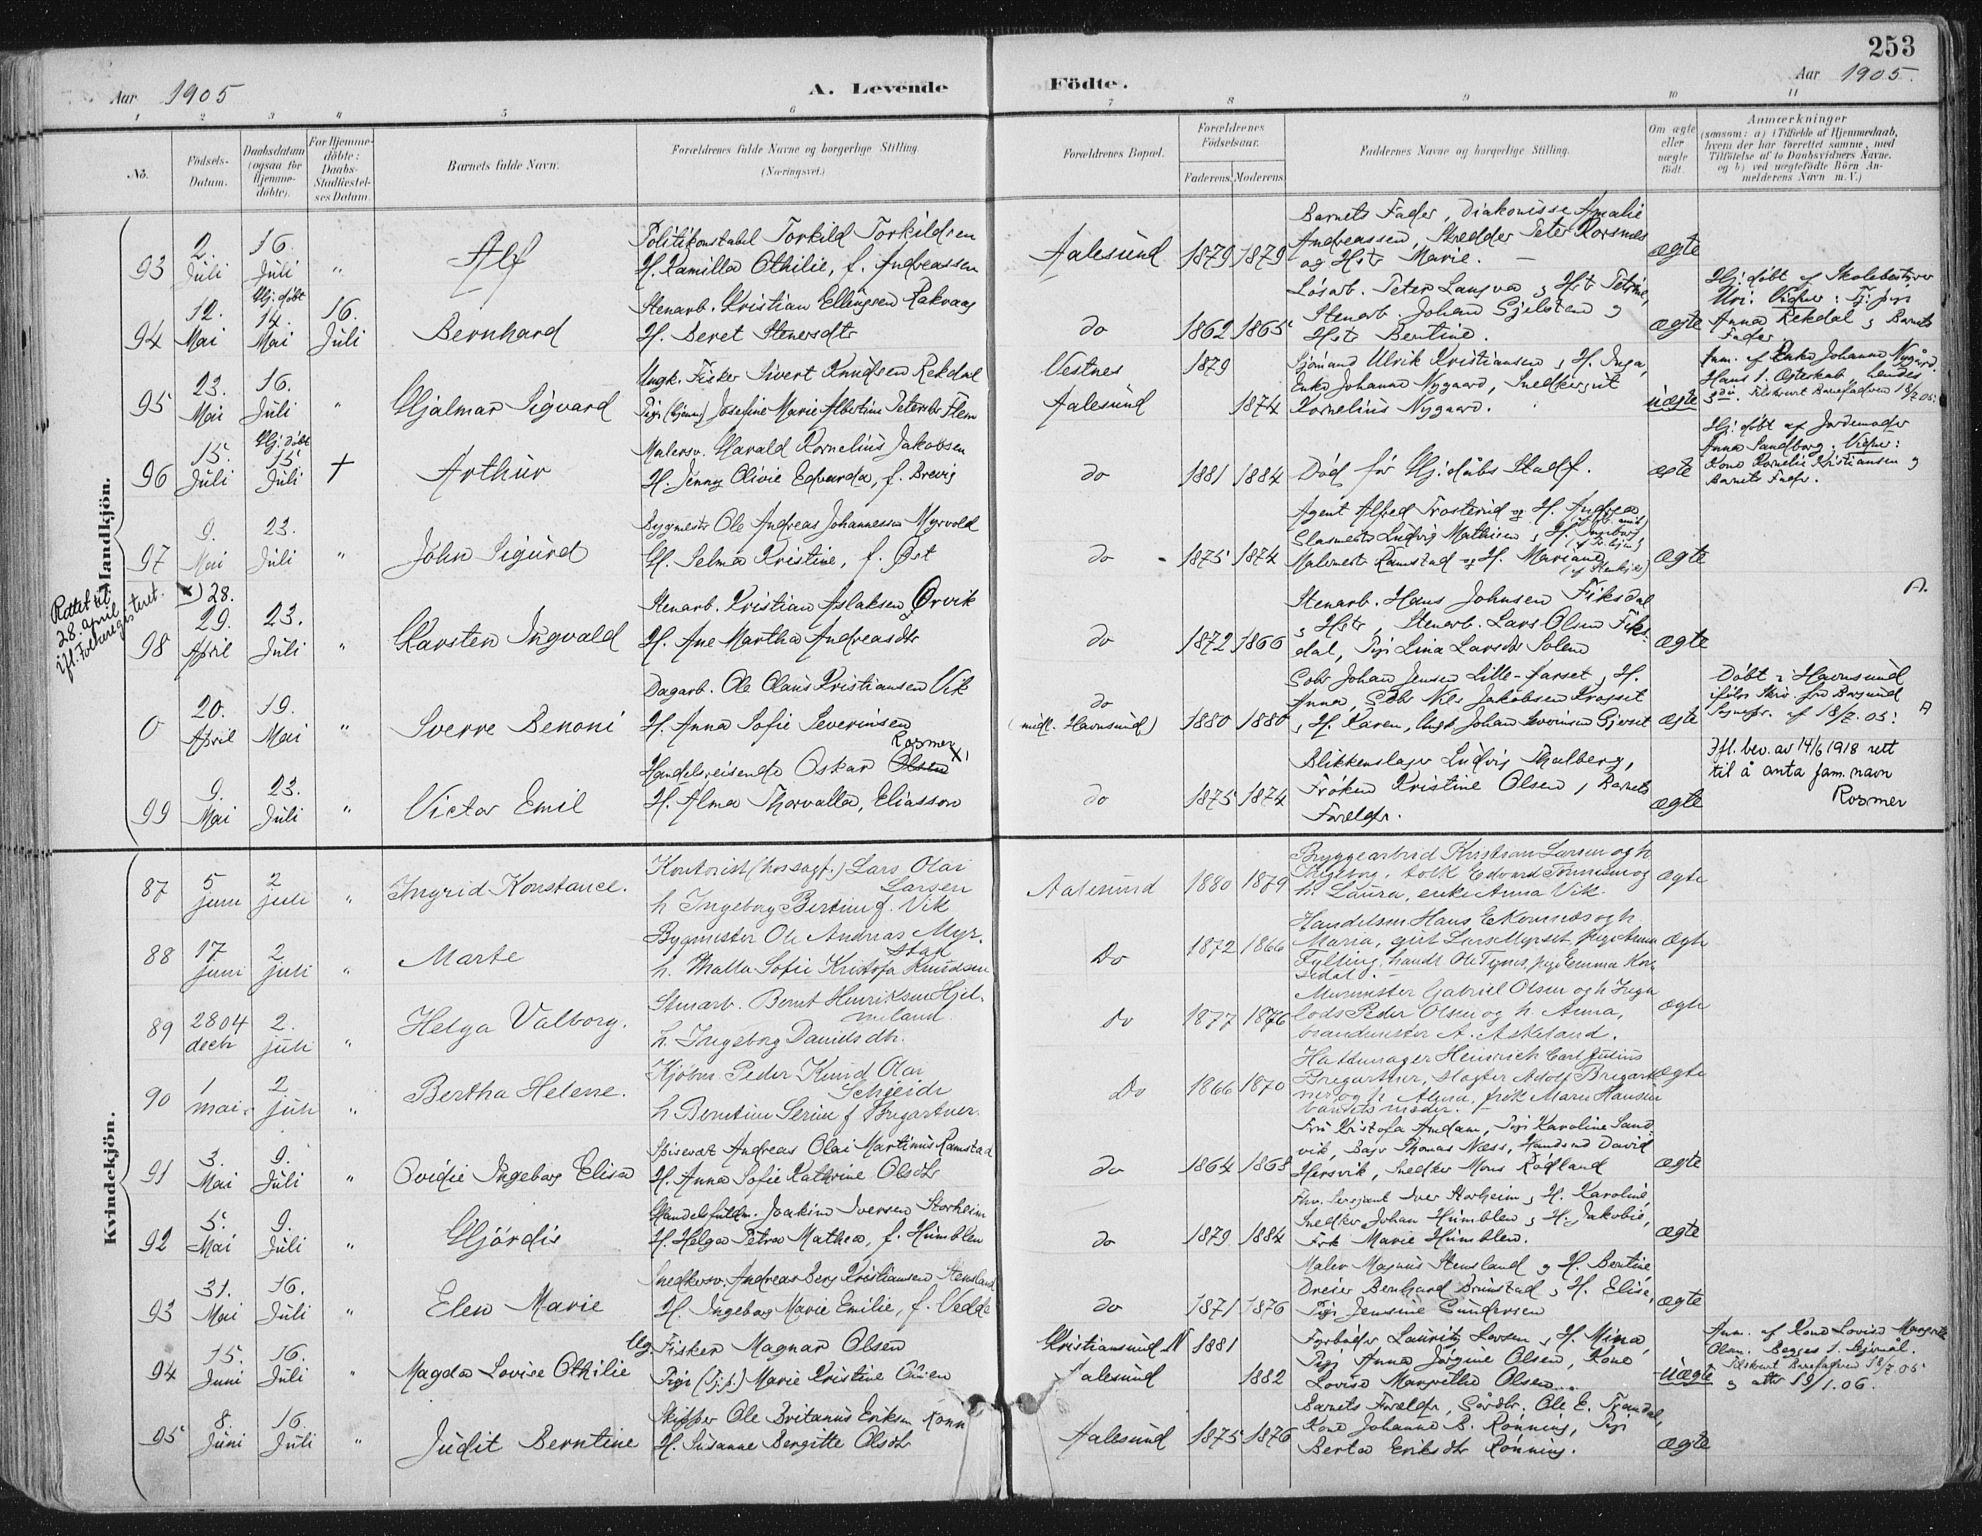 253
Aar 1905
A. Levende
Födte.
Aar 1905.
1 2 3 4 5 6 7 8 9 10 11
No.
Födsels-Datum.
Daabsdatum (ogsaa for Hjemme-döbte).
For Hjemme-döbte: Daabs-Stadfæstel-ses Datum.
Barnets fulde Navn.
Forældrenes fulde Navne og borgerlige Stilling. (Næringsvei.)
Forældrenes Bopæl.
Forældrenes Födselsaar.
Faderens. Moderens.
Faddernes Navne og borgerlige Stilling.
Om ægte eller uægte födt.
Anmærkninger
(saasom: a) i Tilfælde af Hjemmedaab, hvem der har forrettet samme, med Tilföielse af to Daabsvidners Navne. og b) ved uægtefödte Börn An-melderens Navn m. V.)
Mandkjön.
93 2. Juli 16. Juli " Alf
Politikonstabel Torkild Torkildsen
H. Kamilla Othilie, f. Andreassen
Aalesund 1879 1879
Barnets Fader, Diakonisse Amalie
Andreassen, Skredder Peter Korsnes
og Hstr Marie. ægte
94 12. Mai Hj. døbt 14. Mai 16. Juli Bernhard
Stenarb. Kristian Ellingsen Rakvaag
H. Beret Stenersdtr
do 1862 1865
Løsarb. Peter Langva, Hst Petrine,
Stenarb. Johan Gjelsten,
Hstr Bentine. ægte
Hj. døbt af Skolebestyrer
Uri: Vidner:
Anna Rekdal, Barnets
Fader.
95 23. Mai 16. Juli " Hjalmar Sigvard
Ungk. Fisker Sivert Knudsen Rekdal
Pige Josefine Marie Albertine Petersdtr Flem
Vestnes 1879
Aalesund 1874
Sjømand Ulrik Kristiansen, H. Inga,
Enke Johanna Nygaard, Snedkersvt
Kornelius Nygaard. uægte
Anm. af Enke Johanna Nygård.
Hans 1. Ægteskab, hendes
3die. Tilskrevet Barnefaderen 18/7 05.
96 15. Juli Hj. døbt 15. Juli + Arthur
Malersv. Harald Kornelius Jakobsen
H. Jenny Olivie Edvarda, f. Brevig
do 1881 1884
Død før Hj. daabs Stadf. ægte
Hj. døbt af Jordemoder
Anna Sandborg. Vidner:
Kone Kornelie Kristiansen,
Barnets Fader.
97 9. Mai 23. Juli " John Sigurd
Bygmester Ole Andreas Johannessen Myrvold
H. Selma Kristine, f. Øst
do 1875 1874
Agent Alfred Trosterud og H. Andrea
Glasmester Ludvig Mathisen, H. Ingeborg
Malermester Ramstad og H. Mariane ægte
Rettet til
28. april
ifl. Folkeregisteret.
x) 28.
98 29. April 23. Juli " Karsten Ingvald
Stenarb. Kristian Aslaksen Ørvik
H. Ane Martha Andreasdtr
do 1872 1866
Stenarb. Hans Johnsen Fiksdal
, Hstr, Stenarb. Lars Olsen Fiks-
dal, Pige Lina Larsdtr Solem ægte
A.
0 20. April 19. Mai " Sverre Benoni
Dagarb. Ole Olaus Kristiansen Vik
H. Anna Sofie Severinsen
do
(midl. Havnsund) 1880 1880
Gbr Johan Jensen Lille-Farset, H.
Anna, Gbr Nils Jakobsen Krosset
, H. Karen, Ungk. Johan Severinsen Gjerset ægte
Døbt i Havnsund
ifølge Skr. fra Borgund
Sognepr. af 18/7. 05. A
99 9. Mai 23. Juli " Victor Emil
Rosmer x)
Handelsreisende Oskar Olsen
H. Alma Thorvalla, Eliasson
do 1875 1874
Blikkenslager Ludvig Thalberg,
Frøken Kristine Olsen, Barnets
Foreldr. ægte
Ifl. bev. av 14/6 1918 rett
til å anta fam. navn
Rosmer
Kvindekjön.
87 5 juni 2 juli " Ingrid Konstance.
Kontorist Lars Olai
Larsen
h Ingeborg Bertine f. Vik
Aalesund 1880 1879
Bryggearbeid Kristian Larsen og h
Ingeborg, tolk Edvard Tønnesen og
h. Laura, enke Anna Vik. ægte
88 17 juni 2 juli " Marte
Bygmester Ole Andreas Myr-
stad
h. Malla Sofie Kristofa Knudsen
Do 1872 1866
Handelsm Hans Ekornnæs og h
Maria, Lars Myrset, pige Anna
Fylling, handl. Ole Tynes, pige Emma Kor-
sedal. ægte
89 28 04 decb 2. juli " Helga Valborg.
Stenarb. Bernt Henriksen Hjel-
meland.
h. Ingeborg Danielsdtr.
do 1877 1876
Murmester Gabriel Olsen og h Inga
lods Peder Olsen og h. Anna,
brandmester A. Askeland. ægte
90 1 mai 2 juli " Bertha Helene.
Kjøbm Peder Knud Olai
Scheide
h Berntine Serine f Bregartner.
Do 1866 1870
Hattemager Heinrich Carl Julius
Bregartner, slagter Adolf Bregart-
ner og h Alma, frk Marie Hansen
barnets moder. ægte
91 3. Mai 9. Juli " Ovidie Ingeborg Elisa
Spisevært Andreas Olai Martinus Ramstad
H. Anna Sofie Kathrine Olsdtr
do 1864 1868
Fru Kristofa Amdam, Pige Karoline Sand-
vik, Thomas Næss, Handsmd David
Hersvik, Snedker Mons Rødland ægte
92 5. Mai 9. Juli " Hjördis
Handelsfuldm. Joakim Iversen Storheim
H. Helga Petra Mathea, f. Humblen
do 1879 1884
Fhv. Sersjant Iver Storheim, H. Karoline,
Snedker Johan Humblen, H. Jakobie,
Frk Marie Humblen. ægte
93 31. Mai 16. Juli " Elen Marie
Snedkersv. Andreas Berg Kristiansen Stensland
H. Ingeborg Marie Emilie, f. Vedde
do 1871 1876
Maler Magnus Stensland og H. Bentine
Dreier Bernhard Brunstad, H. Elise,
Pige Jensine Gundersen ægte
94 15. Juni 16. Juli " Magda Lovise Othilie
Ug. Fisker Magnar Olsen
Pige Marie Kristine Olsen
Kristiansund N 1881
Aalesund 1882
Fyrbøder Lauritz Larsen, H. Mina,
Pige Anna Jørgine Olsen, Kone
Lovise Margrethe Olsen. uægte
Anm. af Kone Lovise Margrete
Olsen. Begges 1. Leiermål.
Tilskrevet Barnefaderen 18/7 05
og atter 19/1. 06.
95 8. Juni 16. Juli " Judit Berntine
Skipper Ole Britanus Eriksen Rønn
H. Susanne Bergitte Olsdtr
Aalesund 1875 1876
Barnets Foreldr, Gårdbr. Ole E. Tjandal,
Kone Johanne B. Rønning, Pige
Berta Eriksdtr Rønning. ægte